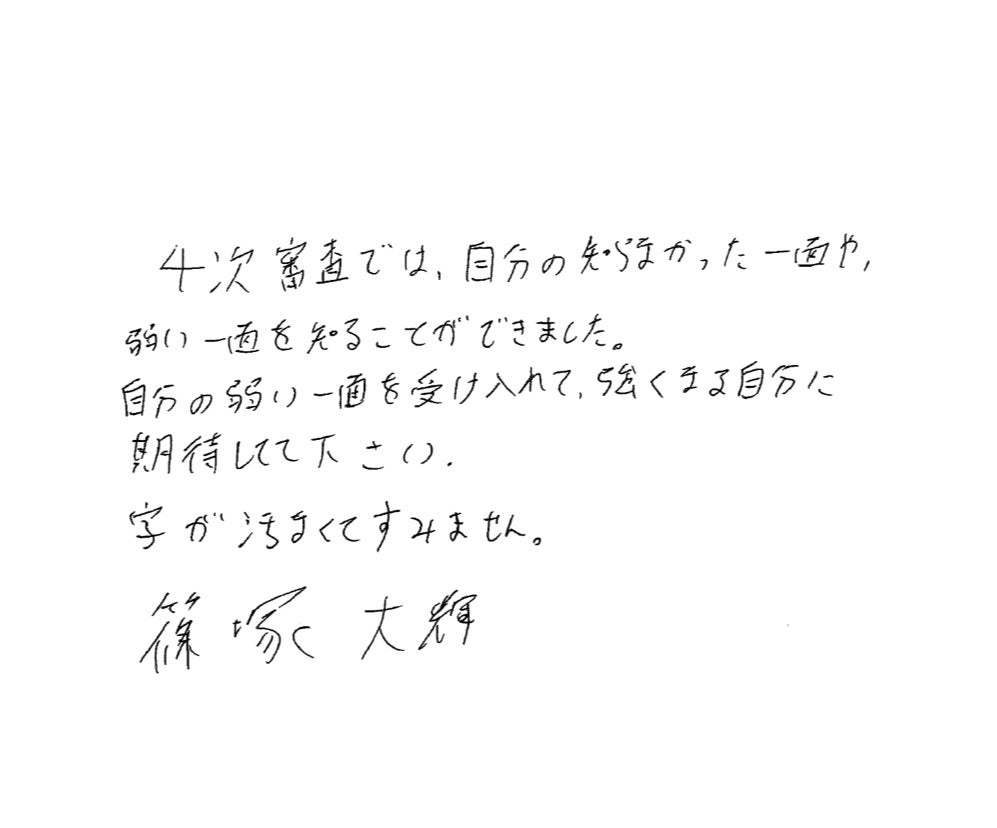 4次審査では、自分の知らなかった一面や、
弱い一面を知ることができました。
自分の弱い一面を受け入れて、強くなる自分に
期待してて下さい.
字が汚なくてすみません。
篠塚 大輝